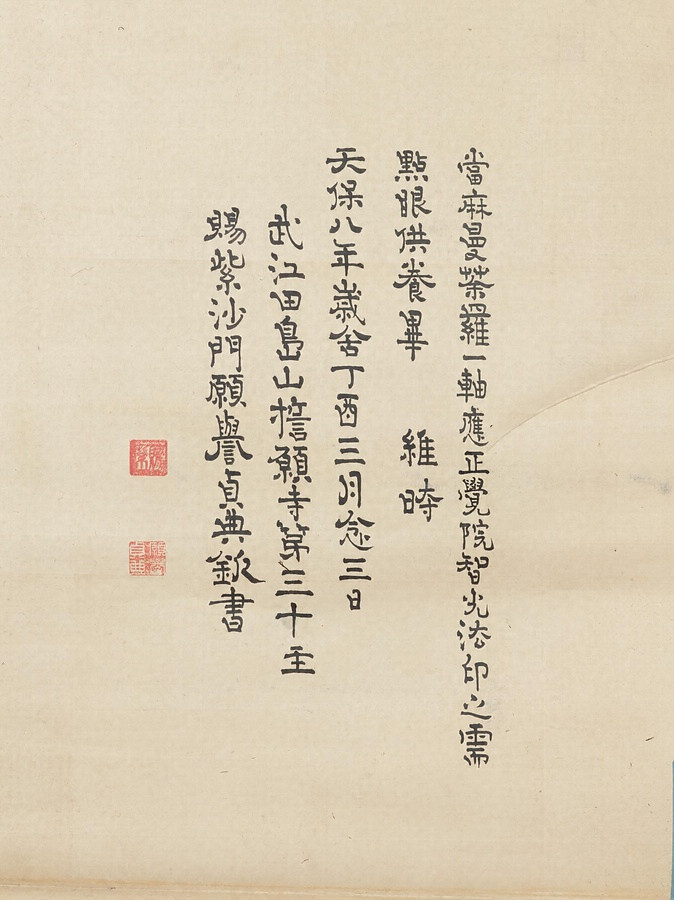 當麻曼荼羅一軸應正覺院智光法印之需
點眼供養畢 維時
天保八年歳舍丁酉三月念三日
武江田島山誓願寺第三十主
賜紫沙門願譽貞典欽書